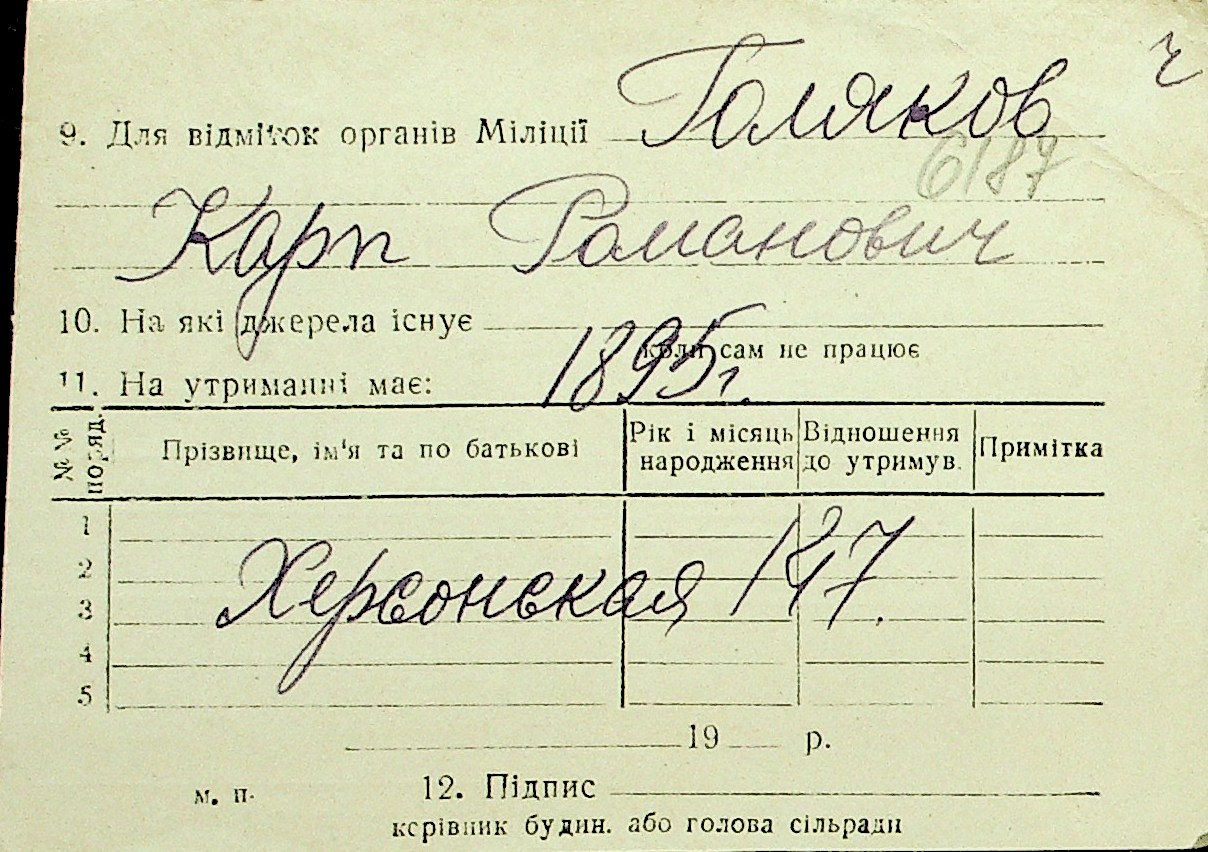 ч
9. Для відміток органів Міліції Голяков
6187
Карп Романович
10. На які джерела існує
коли сам не працює
1895 г.
11. На утриманні має:
№№ поряд. Прізвище, ім'я та по батькові Рік і місяць народження Відношення до утримув. Примітка
1
2
Херсонская 147.
3
4
5
19 р.
м. п. 12. Підпис
керівник будин. або голова сільради